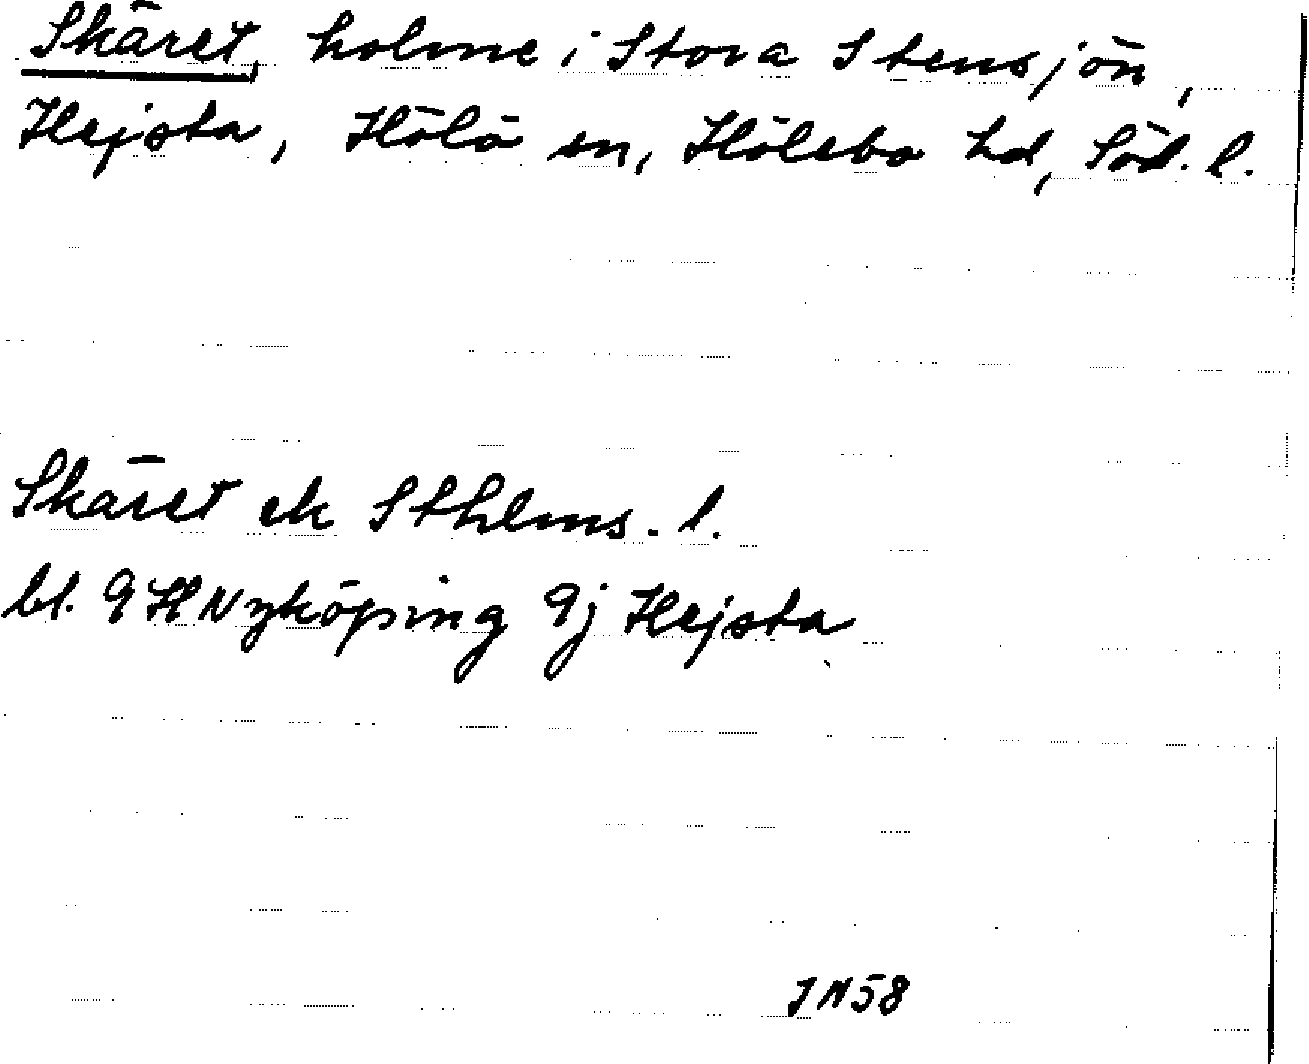 Skäret, holme i Stora Stensjön,
Hejsta, Hölö sn, Hölebo hd, Söd. l.
Skäret ek Sthlms. l.
bl. 9H Nyköping 9j Hejsta
JN58